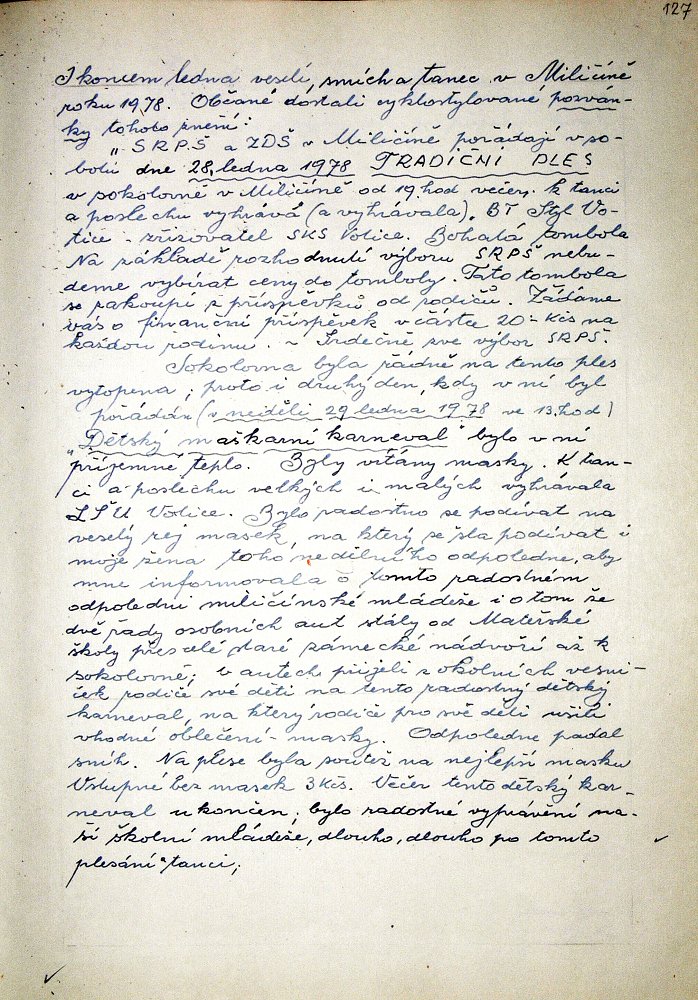 127
I koncem ledna veselí, smích a tanec v Miličíně
roku 1978. Občané dostali cyklostylované pozván-
ky tohoto znění:
„SRPŠ a ZDŠ v Miličíně pořádají v so-
botu dne 28. ledna 1978 TRADIČNÍ PLES
v sokolovně v Miličíně od 19. hod večer, k tanci
a poslechu vyhrává (a vyhrávala), BT Styl Vo-
tice - zřizovatel SKS Votice. Bohatá tombola
Na základě rozhodnutí výboru SRPŠ nebu-
deme vybírat ceny do tomboly. Tato tombola
se zakoupí z příspěvků od rodičů. Žádáme
vás o finanční příspěvek v částce 20- Kčs na
každou rodinu. - Srdečně zve výbor SRPŠ.
Sokolovna byla řádně na tento ples
vytopena, proto i druhý den, kdy v ní byl
pořádán (v neděli 29 ledna 1978 ve 13. hod)
„Dětský maškarní karneval" bylo v ní
příjemné teplo. Byly vítány masky. K tan-
ci a poslechu velkých i malých vyhrávala
LŠU Votice. Bylo radostno se podívat na
veselý rej masek, na který se šla podívat i
moje žena toho nedělního odpoledne, aby
mne informovala o tomto radostném
odpoledni miličínské mládeže i o tom že
dvě řady osobních aut stály od Mateřské
školy přes celé staré zámecké nádvoří až k
sokolovně; v autech přijeli z okolních vesni-
ček rodiče své děti na tento radostný dětský
karneval, na který rodiče pro své děti ušili
vhodné oblečení - masky. Odpoledne padal
sníh. Na plese byla soutěž na nejlepší masku
Vstupné bez masek 3 Kčs. Večer tento dětský kar-
neval ukončen; bylo radostné vyprávění na-
ší školní mládeže, dlouho, dlouho po tomto
plesání a tanci;